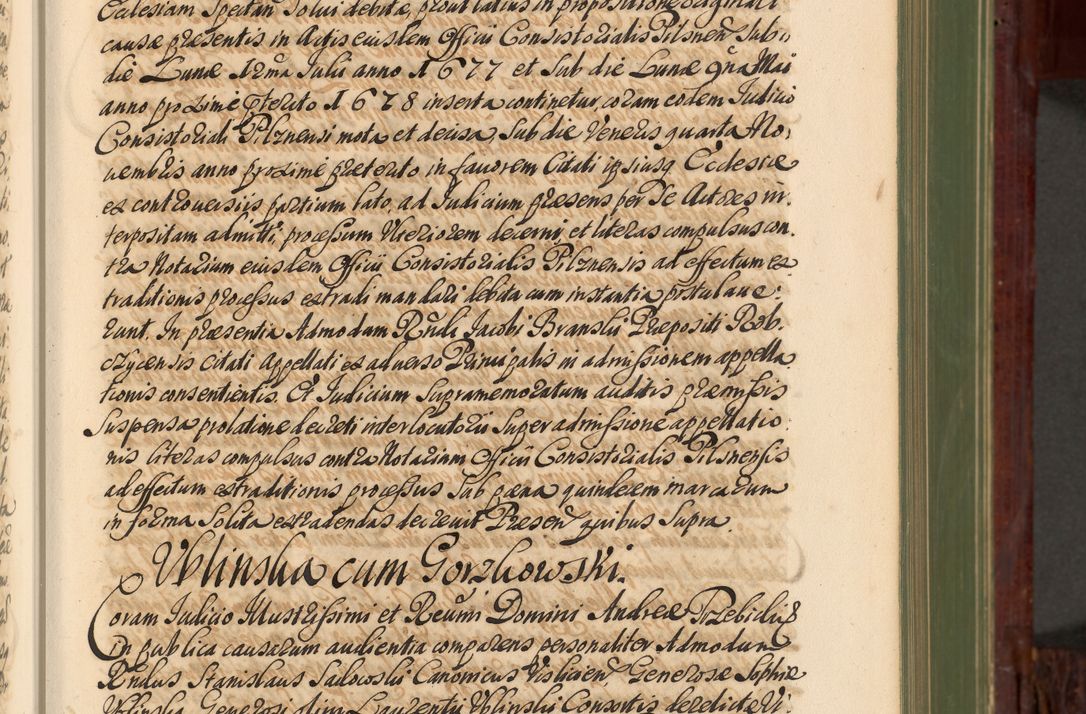 Eclesiam Spectan Solui debitæ, prout latius in propositione Original
causæ præsentis in Actis eiusdem Officii Consistorialis Pilsnen Sub
die Lunæ 12ma Julii anno 1677 et Sub die Lunæ 9na Maii
anno proxime pterito 1678 inserta continetur, coram eodem Judicio
Consistoriali Pilznensi mota et decisa, Sub die Veneris quarta No,
uembris anno proxime præterito in fauorem Citati ipsiusq Ecclesiæ
ex controuersiis partium lato, ad Judicium præsens per Se Actores in,
terpositam admitti, processum Vlteriorem decerni, et literas compulsus con,
tra Notarium eiusdem Officii Consistorialis Pilznensis ad effectum ex
traditionis processus extradi mandari debita cum instantia postulaue:
runt. In præsentia Admodum Rndi Jacobi Branskii Præpositi Rob,
czycensis Citati Appellati ex aduerso Principalis in admissionem appella
tionis consentientis. Et Judicium Supramemoratum auditis præmissis
Suspensa prolatione decreti interlocutorii Super admissione appellatio:
nis literas compulsus contra Notarium Officii Consistorialis Pilsnensis
ad effectum extraditionis processus Sub pæna quindecem marcarum
in forma Solita extradendas decreuit Præsen quibus Supra.
Vblinska cum Gorzkowski.
Coram Judicio Illustrissimi et Reumi Domini Andreæ Przebiskij
in publica causarum audientia comparens personaliter Admodum
Rndus Stanislaus Sadowski Canonicus Visliciens Generosæ Sophiæ
Vblinska Generosi olim Laurentii Vblinskii Consortis derelictæ Vi: